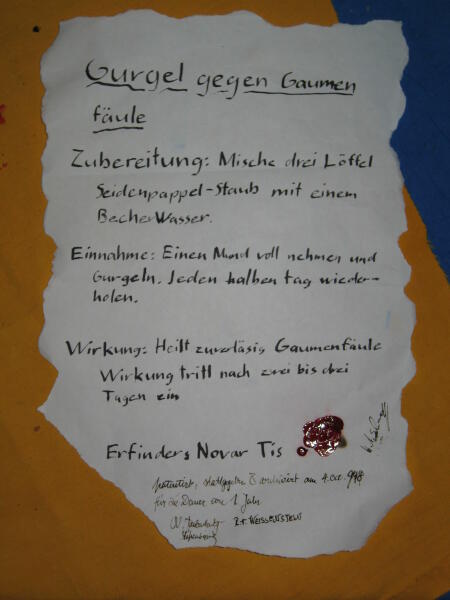 Gurgel gegen Gaumen
fäule
Zubereitung: Mische drei Löffel
Seidenpappel-Staub mit einem
Becher Wasser.
Einnahme: Einen Mund voll nehmen und
Gurgeln. Jeden halben tag wieder-
holen.
Wirkung: Heilt zuverläsig Gaumenfäule
Wirkung tritt nach zwei bis drei
Tagen ein
Erfinders Novar Tis
am 4. Oct.
für die Dauer von 1 Jahr
WEISSENSTEIN